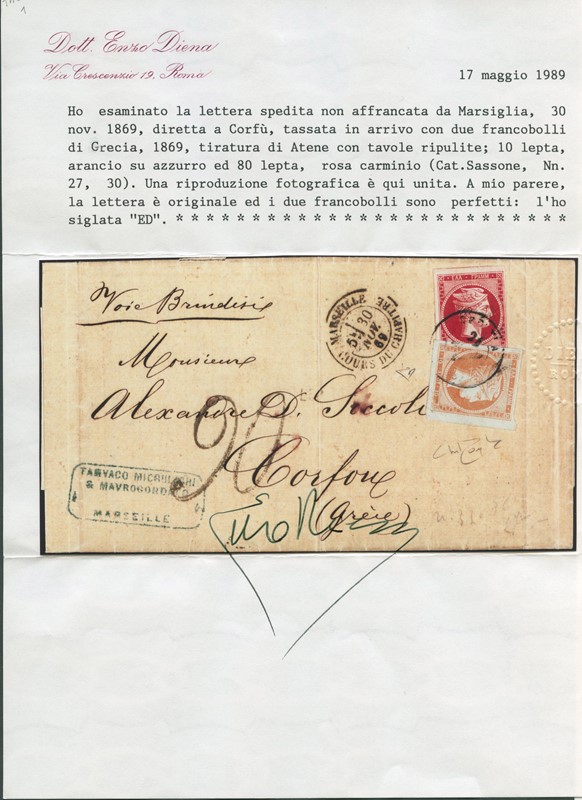 Dott. Enzo Diena
Via Crescenzio 19, Roma
17 maggio 1989
Ho esaminato la lettera spedita non affrancata da Marsiglia, 30
nov. 1869, diretta a Corfù, tassata in arrivo con due francobolli
di Grecia, 1869, tiratura di Atene con tavole ripulite; 10 lepta,
arancio su azzurro ed 80 lepta, rosa carminio (Cat.Sassone, Nn.
27, 30). Una riproduzione fotografica è qui unita. A mio parere,
la lettera è originale ed i due francobolli sono perfetti: l'ho
siglata "ED". * * * * * * * * * * * * * * * * * * * * * * * * * *
Voie Brindisi
ΕΛΛ. ΓΡΑΜΜ.
MARSEILLE
30
NOV.
69
COURS DU CHAPITRE
Monsieur
Alexandre D.
90
Corfou
(Grèce)
& MAVROCORDATO
MARSEILLE